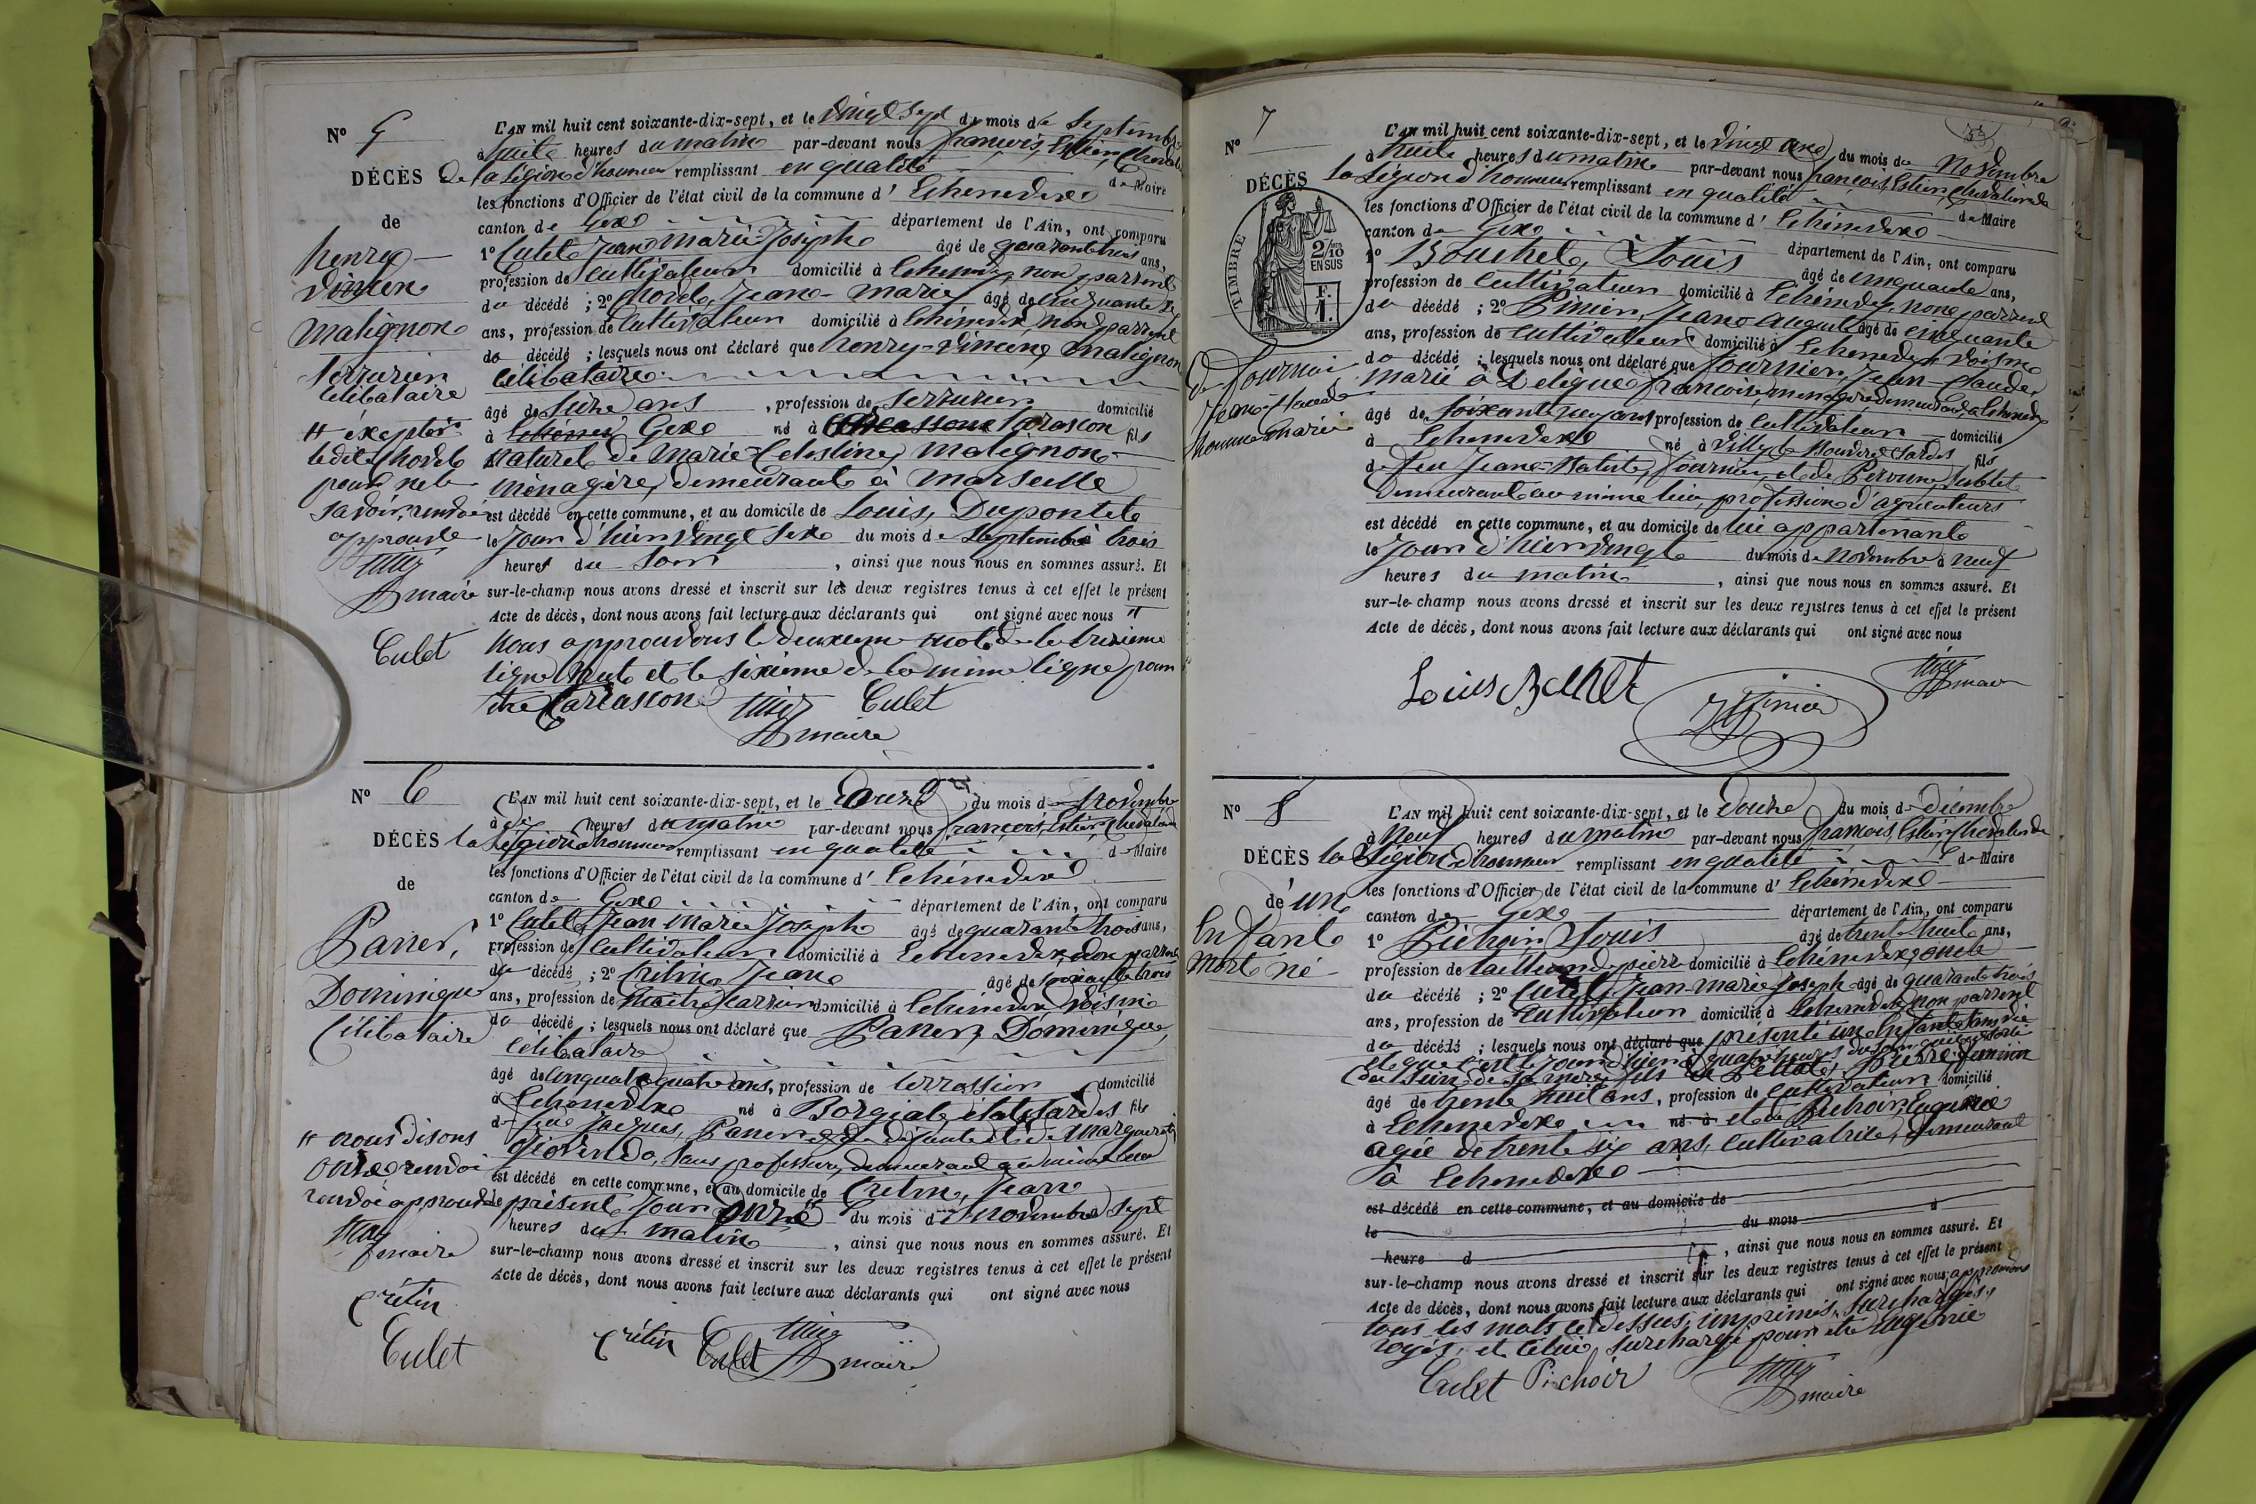 Nº 5
DÉCÈS
de
henry
Vincent
Matignon
Serrurier
Célibataire
# excepter
ledit hovel
pour ne le
savoir, renvoi
approuvé
maire
Culet
L'AN mil huit cent soixante-dix-sept, et le Vingt Sept du mois de Septembre
à huit heures du matin par-devant nous françois, Estien, Chevalier
De la Légion d'honneur remplissant en qualité de Maire
les fonctions d'Officier de l'état civil de la commune d'Echenevex
canton de Gex département de l'Ain, ont comparu
1º Culet Jean Marie Joseph âgé de quarante trois ans,
profession de Cultivateur domicilié à Echenevex non parrent
du décédé ; 2º hovel, Jean-marie âgé de cinquante
ans, profession de Cultivateur domicilié à Echenevex, non parrent
du décédé ; lesquels nous ont déclaré que henry-Vincent Matignon
Célibataire
âgé de Seize ans , profession de Serrurier domicilié
à Gex né à Tarascon fils
Naturel de Marie Celestine, Matignon
Ménagère, demeurant à Marseille
est décédé en cette commune, et au domicile de Louis, Dupontet
le Jour d'hier Vingt Six du mois de Septembre trois
heures du Soir , ainsi que nous nous en sommes assuré. Et
sur-le-champ nous avons dressé et inscrit sur les deux registres tenus à cet effet le présent
Acte de décès, dont nous avons fait lecture aux déclarants qui ont signé avec nous #
Nous approuvons le deuxieme mot de la treizieme
ligne nul et le sixieme de la même ligne pour
être Tarascon
Culet
maire
Nº 6
DÉCÈS
de
Paner,
Dominique
Célibataire
# nous disons
onze renvoi
renvoi approuvé
maire
crétin
Culet
L'AN mil huit cent soixante-dix-sept, et le Onze du mois de Novembre
à dix heures du matin par-devant nous françois, Estien, Chevalier de
la Légion d'honneur remplissant en qualité de Maire
les fonctions d'Officier de l'état civil de la commune d'Echenevex
canton de Gex département de l'Ain, ont comparu
1º Culet, Jean Marie Joseph âgé de quarante trois ans,
profession de Cultivateur domicilié à Echenevex non parrent
du décédé ; 2º Crétin, Jean âgé de soixante trois
ans, profession de Maitre Carrier domicilié à Echenevex voisin
du décédé ; lesquels nous ont déclaré que Paner, Dominique,
Célibataire
âgé de Cinquante quatre ans, profession de terrassier domicilié
à Echenevex né à Borgiale états Sardes fils
de feu Jacques, Paner et de défunte de Marguerite
Giovendo, Sans profession, demeurant au même lieu
est décédé en cette commune, et au domicile de Crétin, Jean
le présent Jour onze du mois de Novembre Sept
heures du matin , ainsi que nous nous en sommes assuré. Et
sur-le-champ nous avons dressé et inscrit sur les deux registres tenus à cet effet le présent
Acte de décès, dont nous avons fait lecture aux déclarants qui ont signé avec nous
crétin Culet maire
Nº 7
DÉCÈS
TIMBRE
2/10
EN SUS
F.
1.
de Fournier
Jean-Claude
homme Marié
L'AN mil huit cent soixante-dix-sept, et le Vingt un du mois de Novembre
à huit heures du matin par-devant nous françois, Estien, Chevalier de
la Légion d'honneur remplissant en qualité de Maire
les fonctions d'Officier de l'état civil de la commune d'Echenevex
canton de Gex département de l'Ain, ont comparu
1º Bouchet, Louis âgé de cinquante ans,
profession de Cultivateur domicilié à Echenevex, non parrent
du décédé ; 2º Jean Auguste âgé de cinquante
ans, profession de Cultivateur domicilié à Echenevex Voisin
du décédé ; lesquels nous ont déclaré que Fournier, Jean-Claude,
marié à françoise menagère demeurant à Echenevex
âgé de Soixante ans profession de Cultivateur domicilié
à Echenevex né à fils
de feu Jean-Batiste, Fournier, et de Pervenne Sublet
demeurant au même lieu, profession d'agriculteurs
est décédé en cette commune, et au domicile de lui appartenant
le Jour d'hier vingt du mois de Novembre à neuf
heures du matin , ainsi que nous nous en sommes assuré. Et
sur-le-champ nous avons dressé et inscrit sur les deux registres tenus à cet effet le présent
Acte de décès, dont nous avons fait lecture aux déclarants qui ont signé avec nous
Louis Bouchet
maire
Nº 8
DÉCÈS
de un
Enfant
Mort né
L'AN mil huit cent soixante-dix-sept, et le Douze du mois de décembre
à Neuf heures du matin par-devant nous françois, Estien, Chevalier de
la Légion d'honneur remplissant en qualité de Maire
les fonctions d'Officier de l'état civil de la commune d'Echenevex
canton de Gex département de l'Ain, ont comparu
1º Pichoir Louis âgé de trente huit ans,
profession de tailleur de pierre domicilié à Echenevex oncle
du décédé ; 2º Culet, Jean-Marie Joseph âgé de quarante trois
ans, profession de Cultivateur domicilié à Echenevex non parrent
du décédé ; lesquels nous ont déclaré que présenté un Enfant Sans vie
et que c'est le jour d'hier à quatre heures du soir qu'il est sorti
du Sein de Sa mère fils de Pierre
âgé de trente huit ans, profession de Cultivateur domicilié
à Echenevex né à et de Pichoir, Eugénie
agée de trente six ans, Cultivatrice, demeurant
à Echenevex
est décédé en cette commune, et au domicile de
le du mois d
heure d , ainsi que nous nous en sommes assuré. Et
sur-le-champ nous avons dressé et inscrit sur les deux registres tenus à cet effet le présent
Acte de décès, dont nous avons fait lecture aux déclarants qui ont signé avec nous, approuvons
tous les mots ci dessus, imprimés, Surchargés,
rayés, et celui surchargé pour être Eugénie
Culet Pichoir
maire